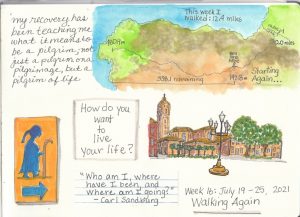 my recovery has
been teaching me
what it means to
be a pilgrim; not
just a pilgrim on a
pilgrimage, but a
pilgrim of life
This week I
walked: 12.4 miles
Starting
Again...
How do you
want to
live
your life?
"Who am I, where
have I been, and
where am I going?"
- Carl Sandburg
Week 16: July 19 - 25, 2021
Walking Again